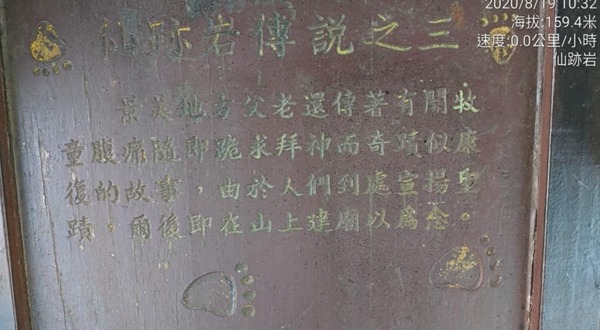 2020/8/19 10:32
海拔:159.4米
速度:0.0公里/小時
仙跡岩
仙跡岩傳說之三
景美地方父老還傳著有關牧
童腹痛隨即跪求拜神而奇蹟似康
復的故事，由於人們到處宣揚聖
蹟。爾後即在山上建廟以為念。